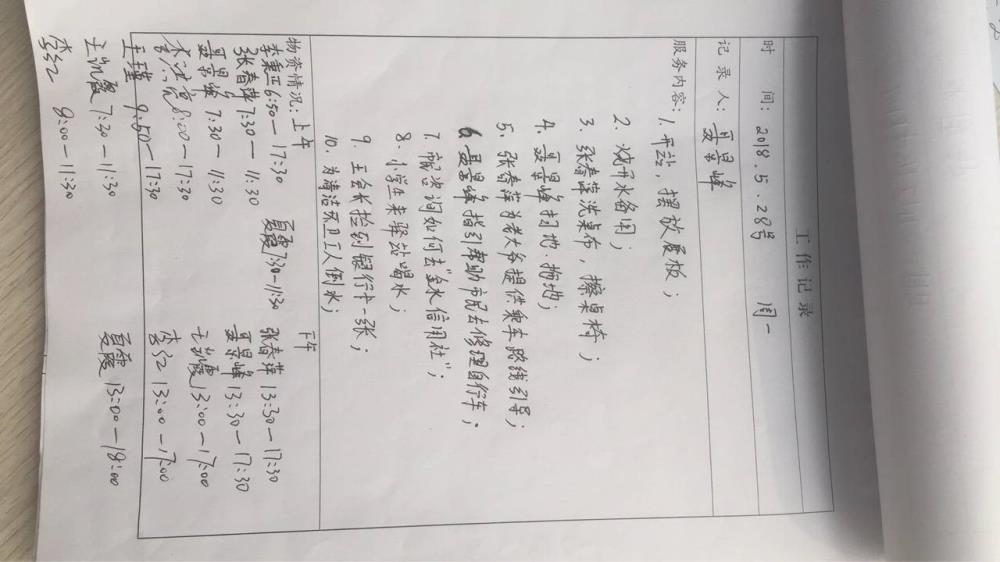 工作记录
时 间: 2018.5.28号 周一
记录人: 聂景峰
服务内容: 1. 开站,摆放展板;
2. 烧开水备用;
3. 张春萍洗桌布,擦桌椅;
4. 聂景峰扫地.拖地;
5. 张春萍为老大爷提供乘车路线引导;
6. 聂景峰指引帮助市民去修理自行车;
7. 咨询如何去"金水信用社";
8. 小学生来驿站喝水;
9. 王会长捡到银行卡一张;
10. 为清洁环卫工人倒水;
物资情况: 上午 下午
李秉正 6:50—17:30
张春萍 7:30—11:30 夏霞 7:30—11:30 张春萍 13:30—17:30
聂景峰 7:30—11:30 聂景峰 13:30—17:30
8:00—17:30 13:00—17:00
王瑾 9:50—17:30 李红 13:00—17:00
7:30—11:30 夏霞 13:00—18:00
李红 8:00—11:30